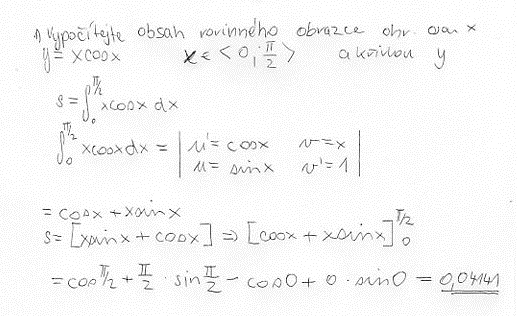 1) Vypočítejte obsah rovinného obrazce ohr. osou x
y = x cos x    x ∈ < 0, π/2 >    a křivkou y
S = ∫₀^{π/2} x cos x dx
∫₀^{π/2} x cos x dx = | u' = cos x    v = x
u = sin x    v' = 1 |
= cos x + x sin x
S = [x sin x + cos x] ⇒ [cos x + x sin x]₀^{π/2}
= cos π/2 + π/2 · sin π/2 - cos 0 + 0 · sin 0 = 0,04141